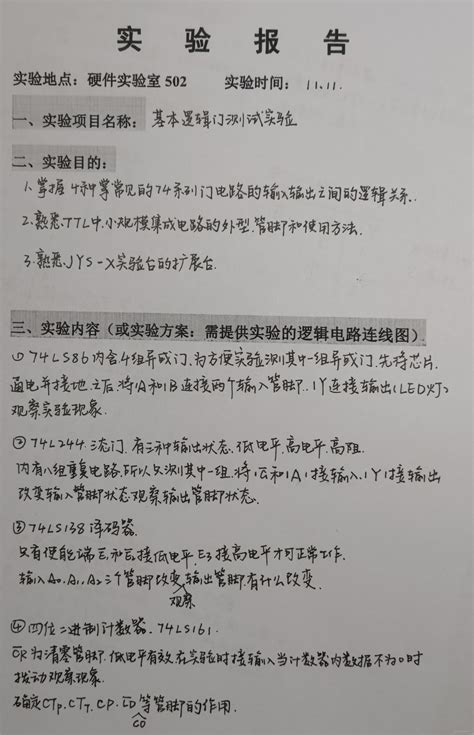 实验报告
实验地点：硬件实验室 502 实验时间： 11.11.
一、实验项目名称： 基本逻辑门测试实验
二、实验目的：
1. 掌握4种常见的74系列门电路的输入输出之间的逻辑关系.
2. 熟悉TTL中.小规模集成电路的外型.管脚和使用方法.
3. 熟悉JYS-X实验台的扩展台.
三、实验内容（或实验方案：需提供实验的逻辑电路连线图）
① 74LS86内含4组异或门.为方便实验测其中一组异或门.先将芯片
通电并接地.之后.将1A和1B连接两个输入管脚.1Y连接输出(LED灯)
观察实验现象.
② 74L244.三流门.有三种输出状态.低电平.高电平.高阻.
内有八组重复电路.所以只测其中一组.将1G和1A1接输入.1Y1接输出
改变输入管脚状态观察输出管脚状态.
③ 74LS138译码器.
只有使能端E1和E2接低电平.E3接高电平才可正常工作.
输入A0.A1.A2三个管脚改变输出管脚.有什么改变.
观察
④ 四位二进制计数器.74LS161.
CR为清零管脚.低电平有效.在实验时接输入当计数器内数据不为0时
拨动观察现象.
确定CTp.CTT.CP.LD等管脚的作用.
CO